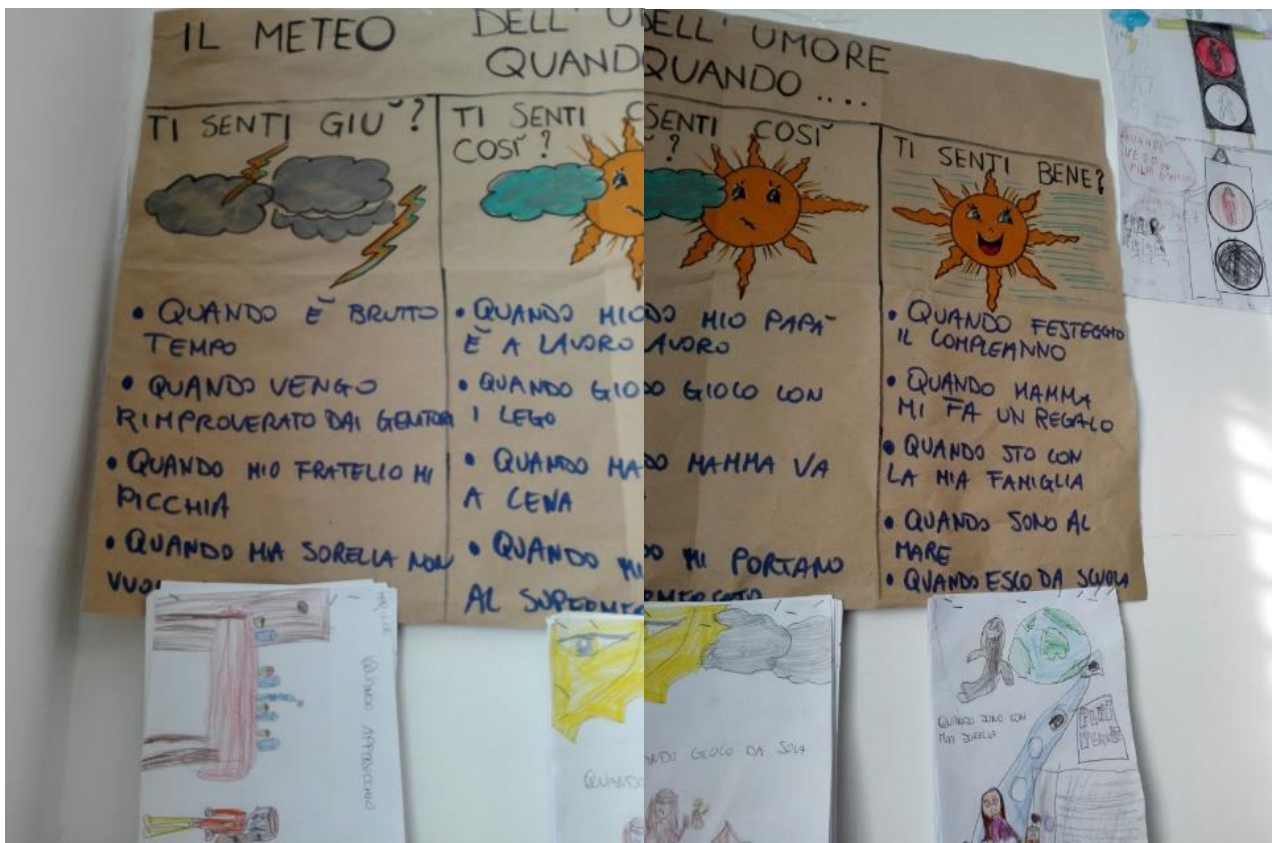 IL METEO DELL'
QUANDO
TI SENTI GIÙ?
• QUANDO È BRUTTO
TEMPO
• QUANDO VENGO
RIMPROVERATO DAI GENITORI
• QUANDO MIO FRATELLO MI
PICCHIA
• QUANDO MIA SORELLA NON
TI SENTI
COSÌ?
• QUANDO MIO
È A LAVORO
• QUANDO GIO
I LEGO
• QUANDO MA
A CENA
• QUANDO MI
AL SUPERMER
QUANDO APPARECCHIO
QUANDO
DELL'UMORE
QUANDO....
SENTI COSÌ
?
DO MIO PAPÀ
LAVORO
DO GIOCO CON
DO MAMMA VA
DO MI PORTANO
TI SENTI BENE?
• QUANDO FESTEGGIO
IL COMPLEANNO
• QUANDO MAMMA
MI FA UN REGALO
• QUANDO STO CON
LA MIA FAMIGLIA
• QUANDO SONO AL
MARE
• QUANDO ESCO DA SCUOLA
ANDO GIOCO DA SOLA
QUANDO SONO CON
MIA SORELLA